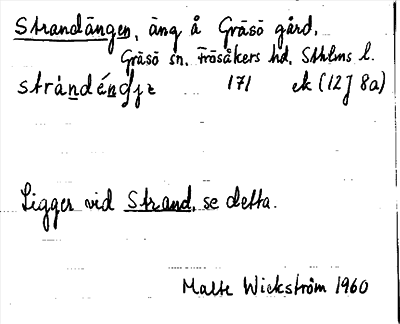 Strandängen, äng å Gräsö gård,
Gräsö sn, Frösåkers hd, Sthlms l.
171 ek (12J 8a)
Ligger vid Strand, se detta.
Malte Wickström 1960